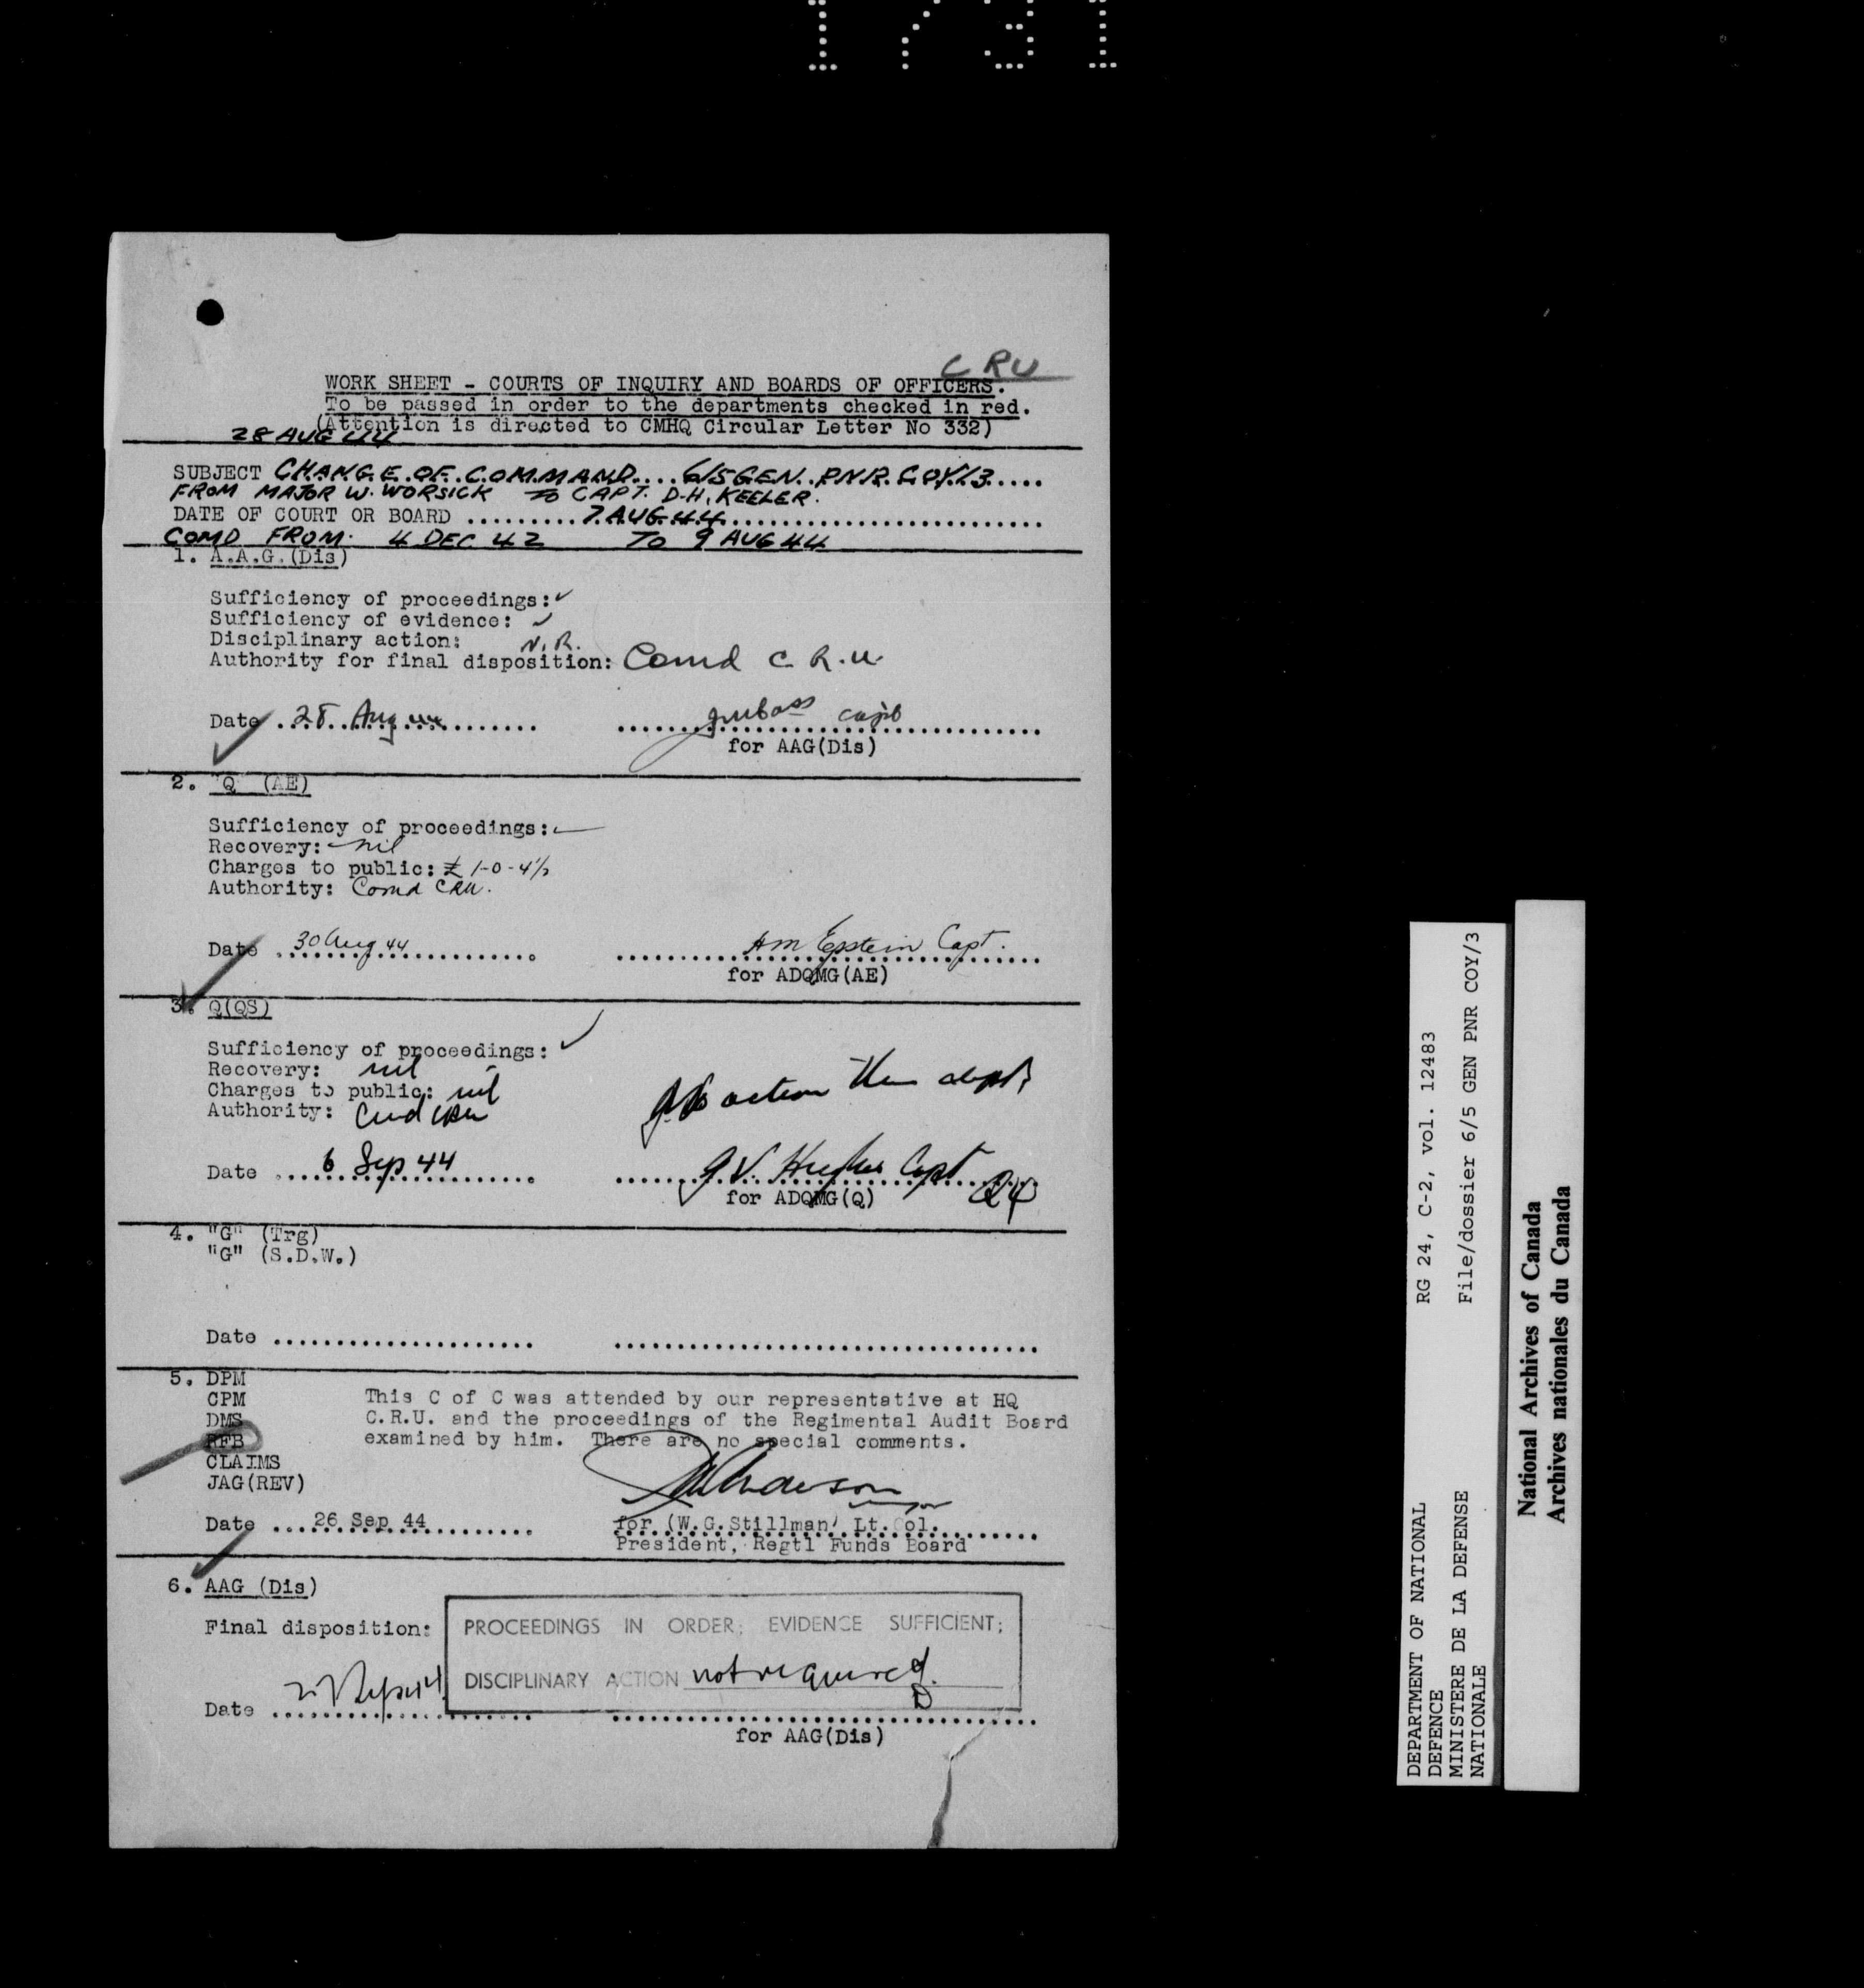 1731
C RU
WORK SHEET - COURTS OF INQUIRY AND BOARDS OF OFFICERS.
To be passed in order to the departments checked in red.
(Attention is directed to CMHQ Circular Letter No 332)
28 AUG 44
SUBJECT CHANGE OF COMMAND.... 6/5 GEN. PNR. COY/3.....
FROM MAJOR W. WORSICK TO CAPT. D.H. KEELER.
DATE OF COURT OR BOARD .........7 AUG 44.........................
COMD FROM. 4 DEC 42 TO 9 AUG 44
1. A.A.G.(Dis)
Sufficiency of proceedings: ✓
Sufficiency of evidence: ✓
Disciplinary action: N.R.
Authority for final disposition: Comd C.R.U.
Date ..28 Aug 44........ .................................
for AAG(Dis)
2. "Q" (AE)
Sufficiency of proceedings:
Recovery: nil
Charges to public: £ 1-0-4½
Authority: Comd CRU.
Date .30 Aug 44........... HM Epstein Capt.
for ADQMG(AE)
3. Q(QS)
Sufficiency of proceedings: ✓
Recovery: nil
Charges to public: nil
Authority: Cmd CRU
action this dept
Date ....6 Sep 44....... G V. Hughes Capt Q4
for ADQMG(Q)
4. "G" (Trg)
"G" (S.D.W.)
Date ..................... .................................
5. DPM
CPM This C of C was attended by our representative at HQ
DMS C.R.U. and the proceedings of the Regimental Audit Board
RFB examined by him. There are no special comments.
CLAIMS
JAG(REV)
Date ...26 Sep 44......... for (W.G.Stillman) Lt.Col.
President, Regtl Funds Board
6. AAG (Dis)
Final disposition: PROCEEDINGS IN ORDER; EVIDENCE SUFFICIENT;
DISCIPLINARY ACTION not required.
Date ..................... .................................
for AAG(Dis)
DEPARTMENT OF NATIONAL DEFENCE
MINISTERE DE LA DEFENSE NATIONALE
RG 24, C-2, vol. 12483
File/dossier 6/5 GEN PNR COY/3
National Archives of Canada
Archives nationales du Canada